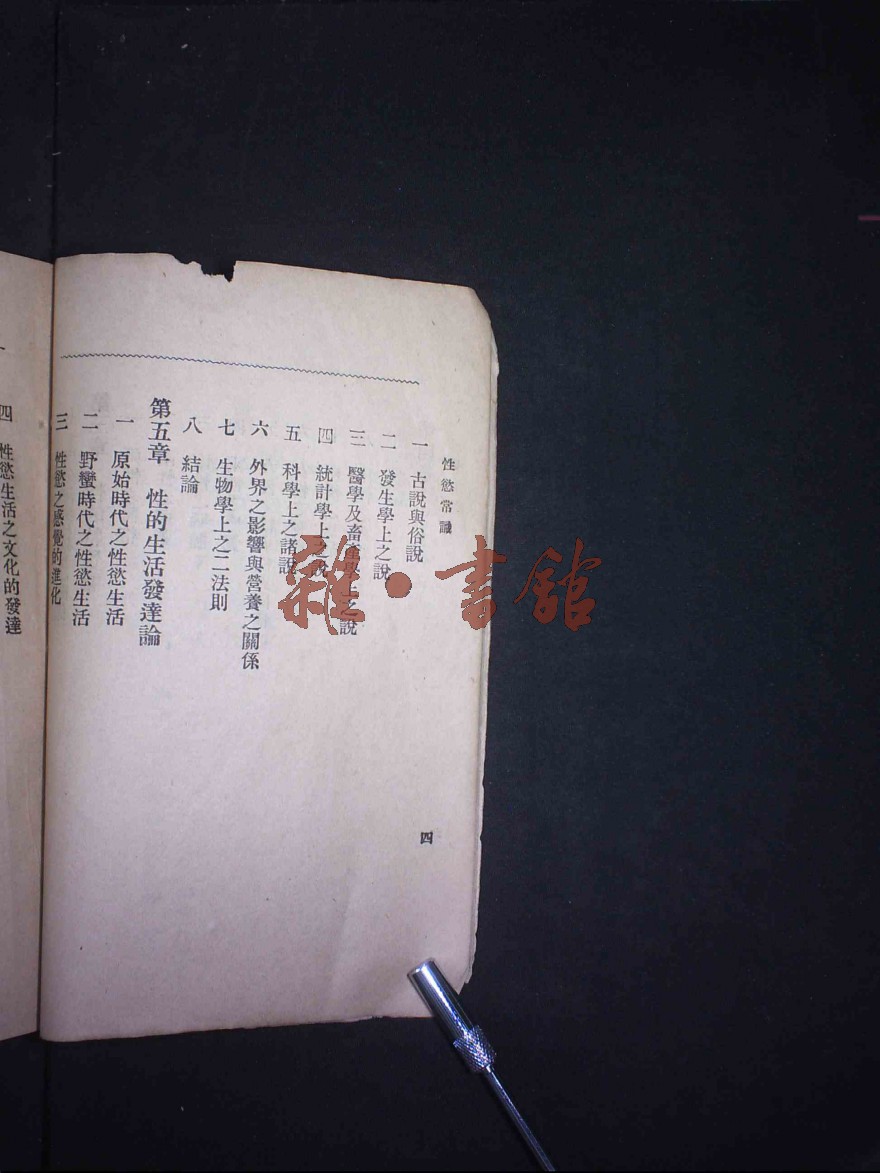 性慾常識
四
一 古說與俗說
二 發生學上之說
三 醫學及畜產學上之說
四 統計學上之說
五 科學上之諸說
六 外界之影響與營養之關係
七 生物學上之二法則
八 結論
第五章 性的生活發達論
一 原始時代之性慾生活
二 野蠻時代之性慾生活
三 性慾之感覺的進化
四 性慾生活之文化的發達
雜·書館